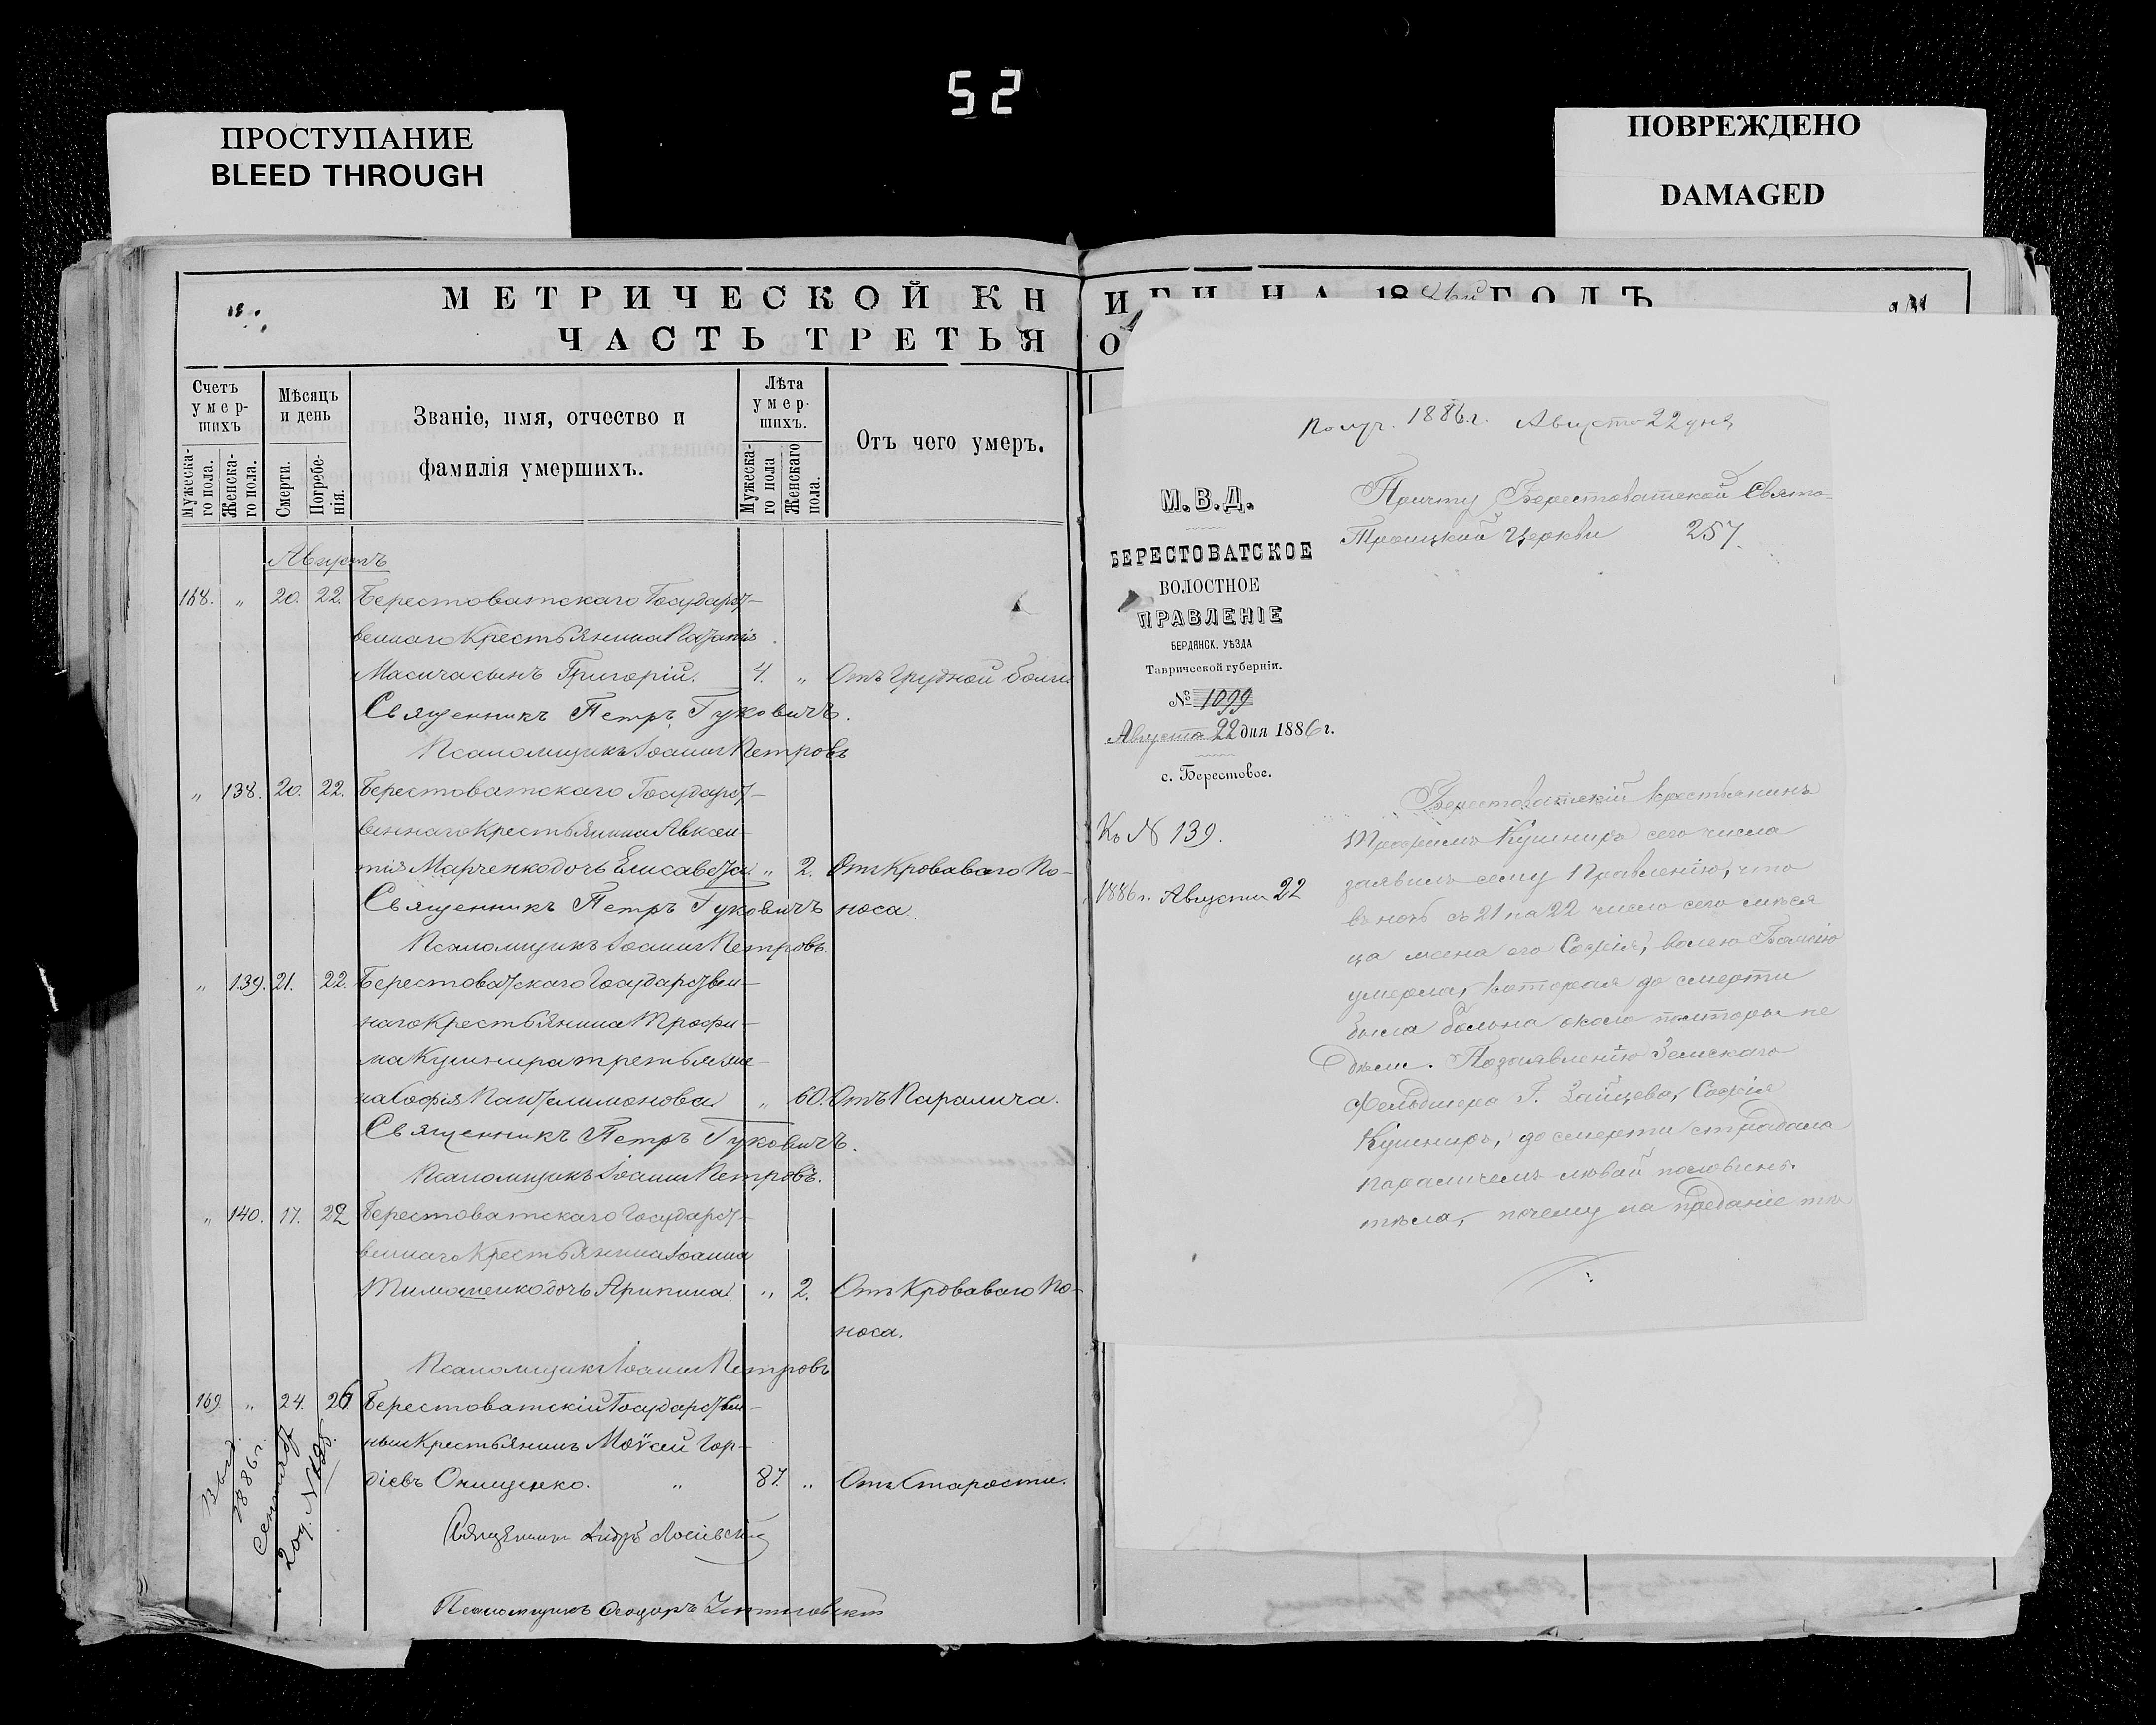 52
ПРОСТУПАНИЕ
BLEED THROUGH
ПОВРЕЖДЕНО
DAMAGED
МЕТРИЧЕСКОЙ КН
ЧАСТЬ ТРЕТЬЯ
Счетъ умер-шихъ
Мужеска-го пола.
Женска-го пола.
Мѣсяцъ и день
Смерти.
Погребе-нія.
Званіе, имя, отчество и
фамилія умершихъ.
Лѣта умер-шихъ.
Мужеска-го пола
Женскаго пола.
Отъ чего умеръ.
Августъ
168. „ 20. 22. Берестоватскаго Государст-
веннаго Крестьянина
Масича сынъ Григорій. 4. „ Отъ грудной боли
Священникъ Петръ Гуковичъ.
Псаломщикъ Іоаннъ Петровъ
„ 138. 20. 22. Берестоватскаго Государст-
веннаго Крестьянина Авксен-
тія Марченко дочь Елисавета „ 2. Отъ Кроваваго По-
Священникъ Петръ Гуковичъ носа.
Псаломщикъ Іоаннъ Петровъ.
„ 139. 21. 22. Берестоватскаго Государствен-
наго Крестьянина Трофи-
ма Кушнира третья же-
на Софія Пантелимонова „ 60. Отъ Паралича.
Священникъ Петръ Гуковичъ.
Псаломщикъ Іоаннъ Петровъ.
„ 140. 17. 22 Берестоватскаго Государст-
веннаго Крестьянина Іоанна
Тимошенко дочь Агрипина „ 2. Отъ Кроваваго По-
носа.
Псаломщикъ Іоаннъ Петровъ
169. „ 24. 26. Берестоватскій Государствен-
ный Крестьянинъ Моѵсей Гор-
діевъ Онищенко. „ 87. „ Отъ Старости.
Священникъ
Псаломщикъ Ѳеодоръ
1886 г.
ИГИ НА 1886й ГОДЪ
О
Получ. 1886 г. Августа 22 дня
М.В.Д.
БЕРЕСТОВАТСКОЕ
ВОЛОСТНОЕ
ПРАВЛЕНІЕ
БЕРДЯНСК. УѢЗДА
Таврической губерніи.
№ 1099
Августа 22 дня 1886 г.
с. Берестовое.
Къ № 139.
1886 г. Августа 22
Причту Берестоватской Свято-
Троицкой Церкви 257.
Берестоватскій крестьянинъ
Трофимъ Кушниръ сего числа
заявилъ сему Правленію, что
въ ночь съ 21 на 22 число сего мѣся
ца жена его Софія, волею Божіею
умерла, которая до смерти
была больна около полторы не
дѣли. По заявленію Земскаго
Фельдшера Г. Зайцева, Софія
Кушниръ, до смерти страдала
параличемъ лѣвой половины
тѣла, почему на преданіе тѣ